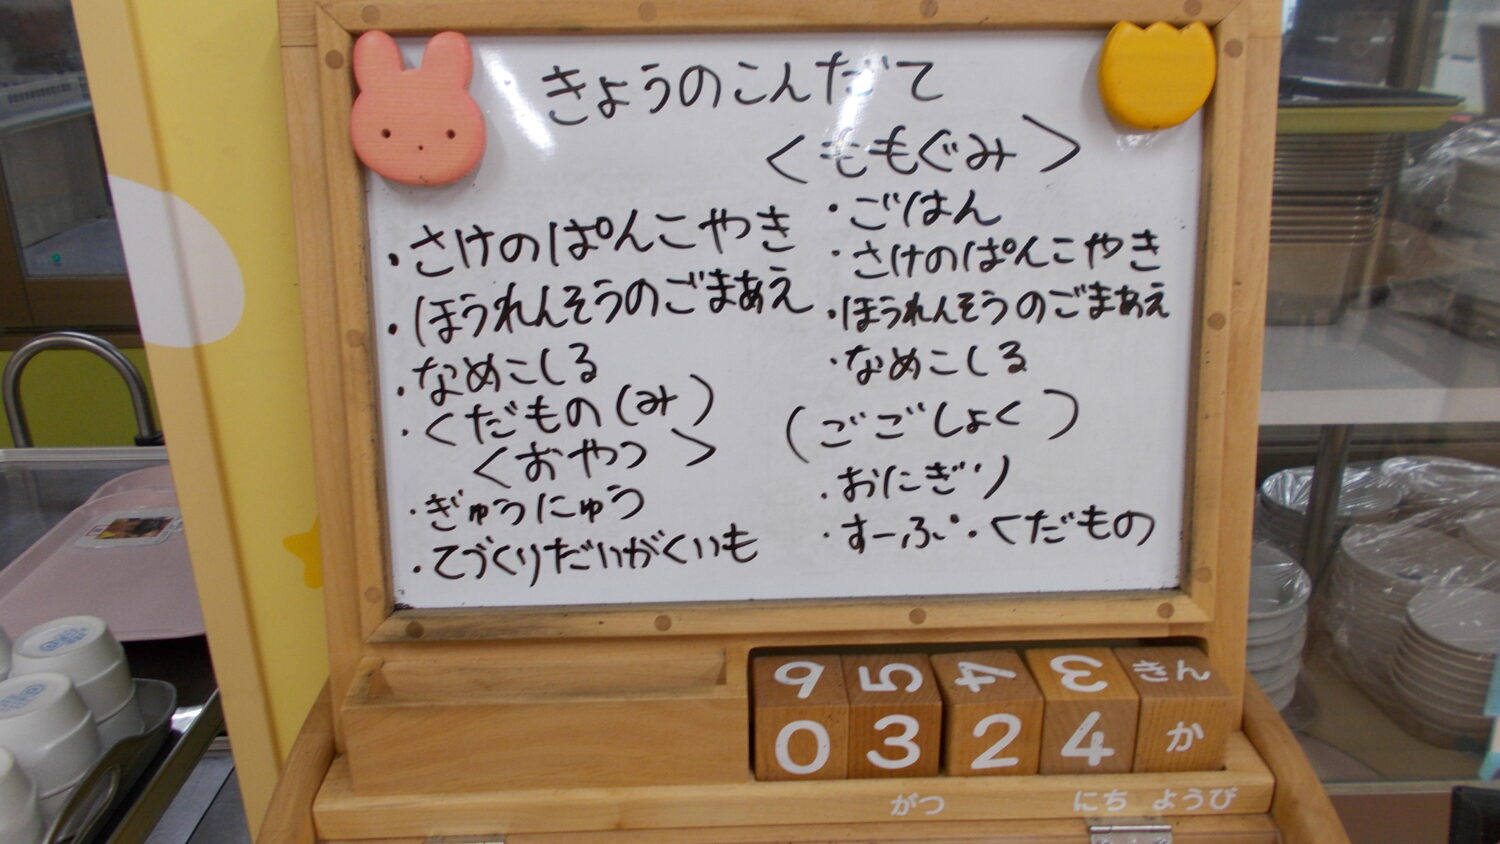 きょうのこんだて
・さけのぱんこやき
・ほうれんそうのごまあえ
・なめこしる
・くだもの(み)
<おやつ>
・ぎゅうにゅう
・てづくりだいがくいも
<ももぐみ>
・ごはん
・さけのぱんこやき
・ほうれんそうのごまあえ
・なめこしる
(ごごしょく)
・おにぎり
・すーぷ・くだもの
9 5 4 3 きん
0 3 2 4 か
がつ にち ようび